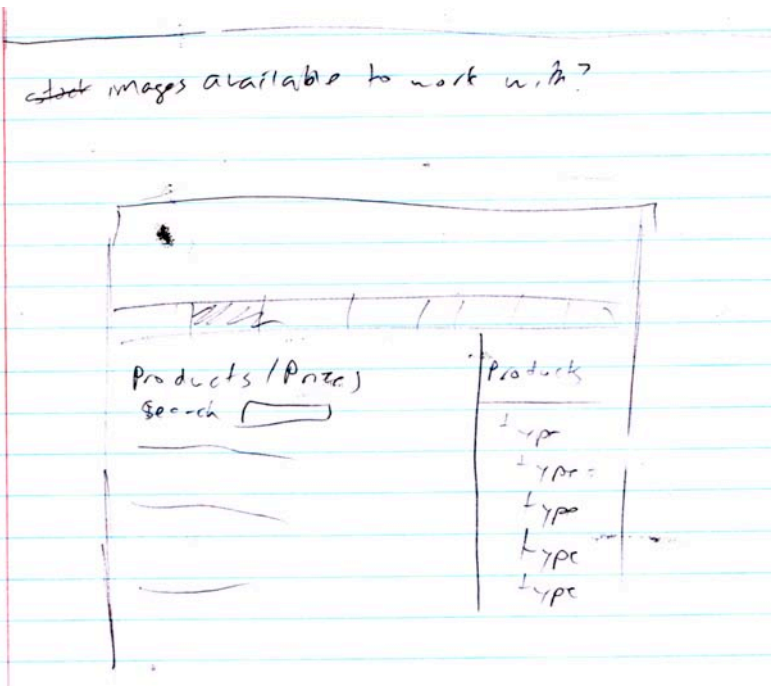 stock images available to work with?
Products (Prize)
Search
Products
type
type
type
type
type